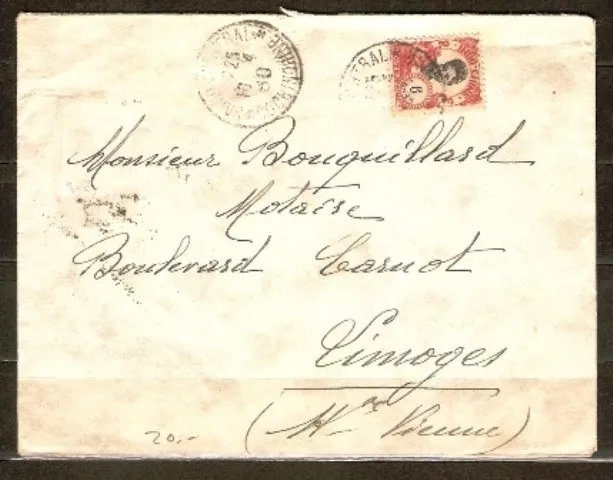 Monsieur Bouquillard
Notaire
Boulevard Carnot
Limoges
(Hte Vienne)
20,-